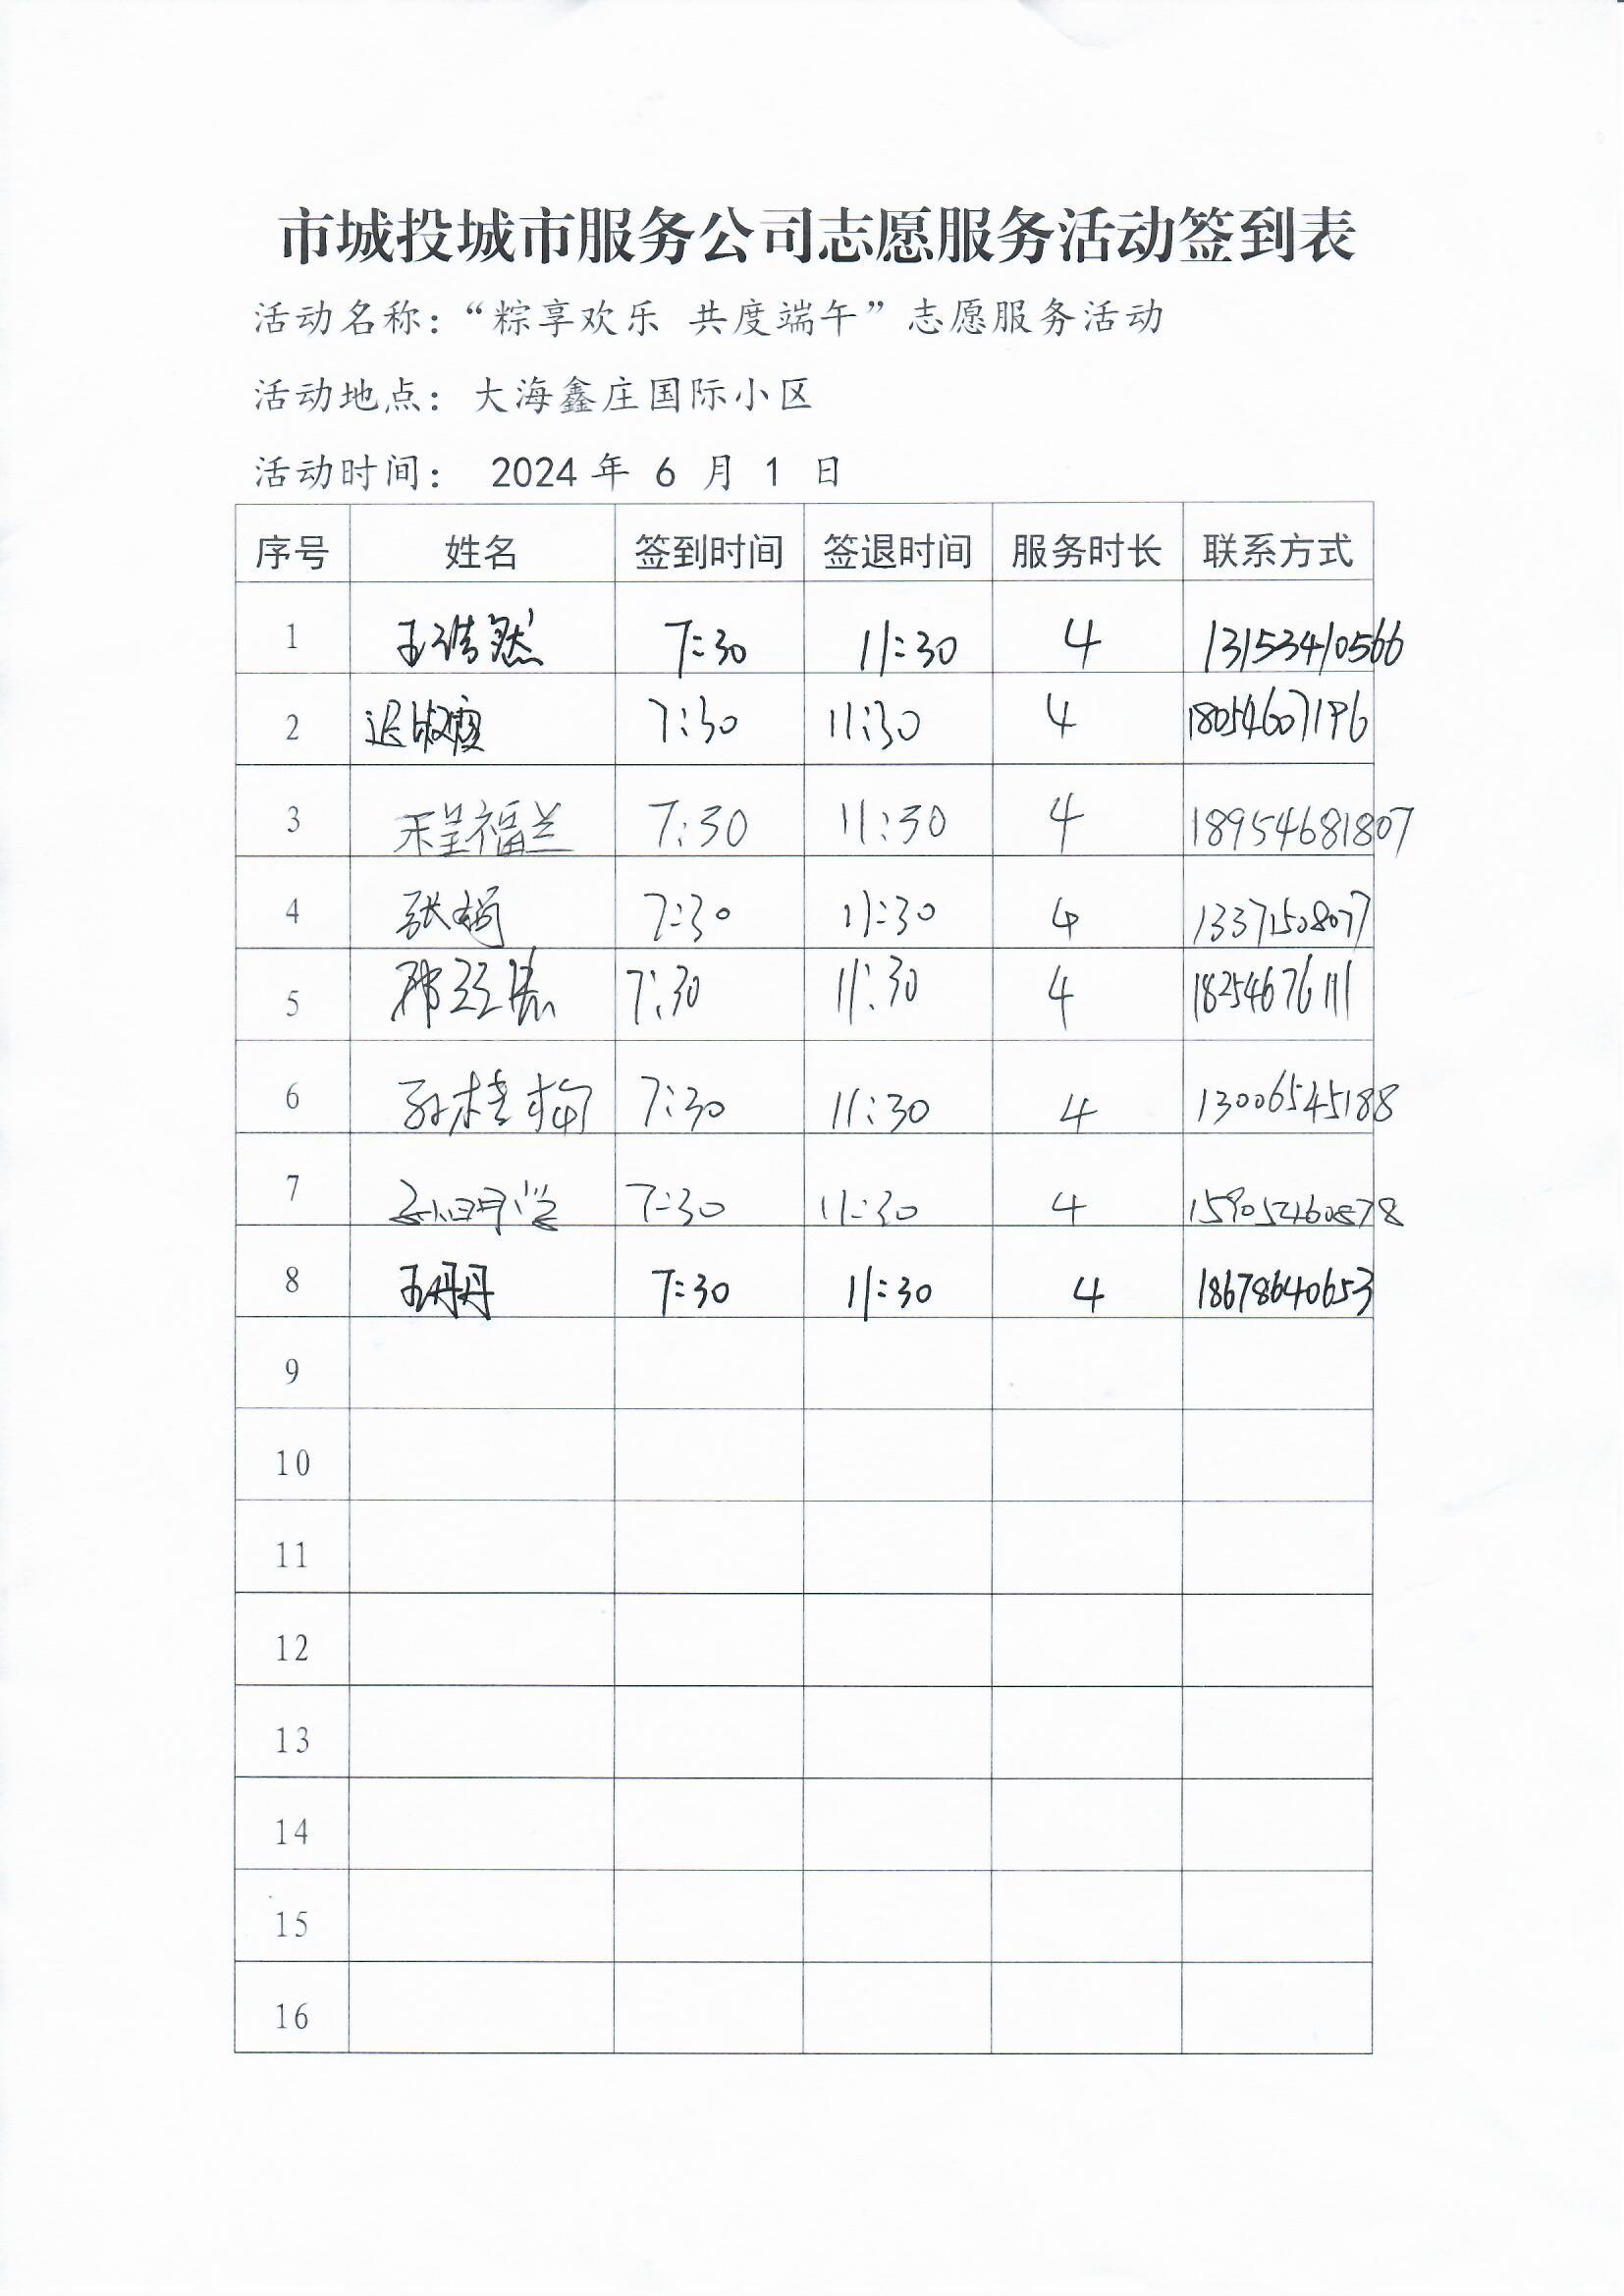 市城投城市服务公司志愿服务活动签到表
活动名称：“粽享欢乐 共度端午”志愿服务活动
活动地点： 大海鑫庄国际小区
活动时间： 2024年 6 月 1 日
序号 姓名 签到时间 签退时间 服务时长 联系方式
1 王浩然 7:30 11:30 4 13153410566
2 迟淑霞 7:30 11:30 4 18054607196
3 程福兰 7:30 11:30 4 18954681807
4 张娟 7:30 11:30 4 13371508077
5 7:30 11:30 4 18254676111
6 孙桂梅 7:30 11:30 4 13006545188
7 孙明堂 7:30 11:30 4
8 王丹丹 7:30 11:30 4 18678640653
9
10
11
12
13
14
15
16